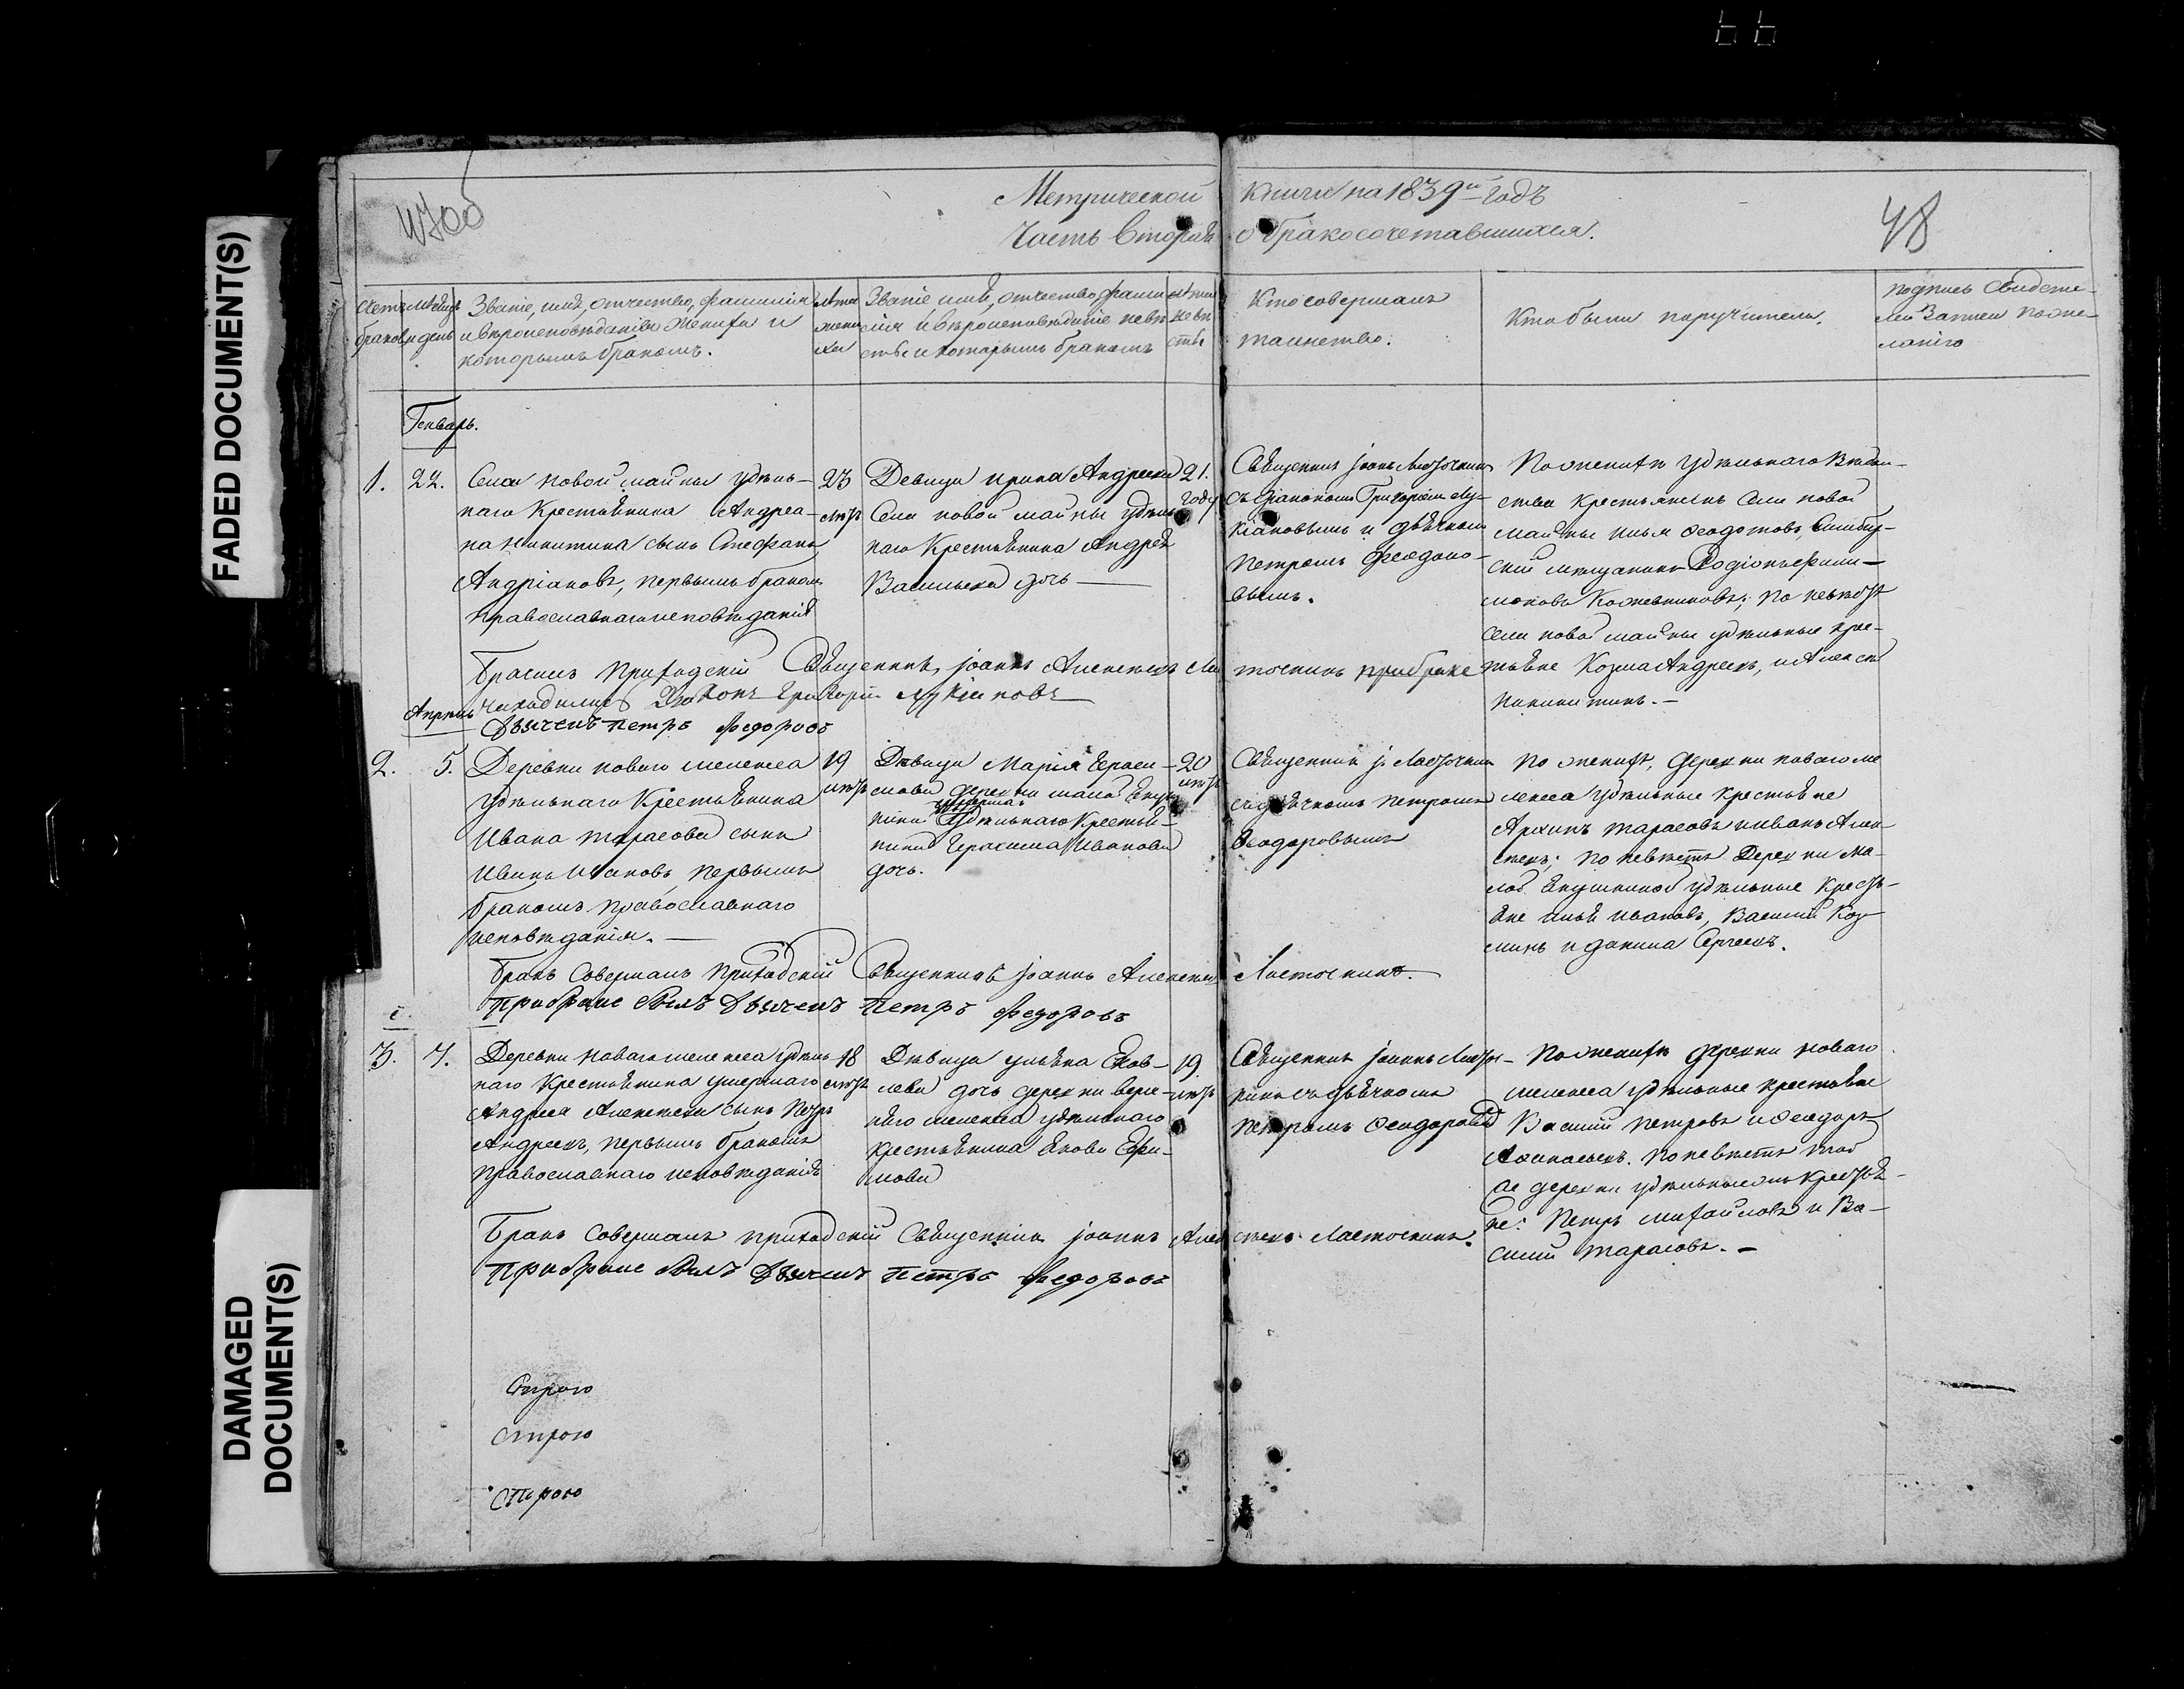 FADED DOCUMENT(S)
DAMAGED
DOCUMENT(S)
Метрической книги на 1839й годъ
Часть Вторая о бракосочетавшихся.
48
Счетъ браковъ
Мѣсяцъ и день
Званіе, имя, отчество, фамилія
и вѣроисповѣданіе жениха и
которымъ бракомъ.
Лѣта
жени
ха
Званіе имя, отчество, фами
лія и вѣроисповѣданіе невѣ
сты и которымъ бракомъ
Лѣта
невѣ
сты
Кто совершалъ
таинство.
Кто были поручители.
Подпись Свидѣте-
лей Записи по же-
ланію
Генварь.
1.
22.
Села новой майны удѣль-
наго Крестьянина Андреа-
на Никитина сынъ Стефанъ
Андріановъ, первымъ бракомъ
православнаго исповѣданія
23
лѣтъ
Девица ирина Андреева
Села новой майны удѣль
наго Крестьянина Андрея
Васильева дочь
21.
году
Священникъ Іоаннъ Ласточкинъ
съ Діакономъ Григоріемъ Лу-
кіановымъ и дьячкомъ
Петромъ Феодоро-
вымъ.
По женихѣ удѣльнаго Вѣдом-
ства крестьянинъ Села новой
майны Илья Феодотовъ, Симбир-
скій мѣщанинъ Родіонъ Фили-
моновъ Кожевниковъ; по невѣстѣ
села новой майны удѣльные крес-
тьяне Козма Андреевъ, и Алексѣй
Никитинъ.
Бракъ Приходскій Священникъ Іоаннъ Алексѣевъ Ласточкинъ при бракѣ
находились Діаконъ Григорій Лукіановъ
Дьячекъ Петръ Федоровъ
Апрѣль
2.
5.
Деревни новаго мелекеса
удѣльнаго Крестьянина
Ивана тарасова сынъ
Иванъ Ивановъ, первымъ
бракомъ православнаго
исповѣданія.
19
лѣтъ
Дѣвица Марія Гераси-
мова деревни малой Якуш
кини удѣльнаго Крестья-
нина Герасима Иванова
дочь.
20
лѣтъ
Священникъ І. Ласточкинъ
съ дьячкомъ Петромъ
Феодоровымъ
По женихѣ, деревни новаго ме
лекеса удѣльные крестьяне
Архипъ тарасовъ и иванъ Алек-
сѣевъ; по невѣстѣ Деревни Ма-
лой Якушкиной удѣльные кресть-
яне илья ивановъ, Василій Коз-
минъ и данила Сергеевъ.
Бракъ Совершалъ Приходскій Священникъ Іоаннъ Алексѣевъ Ласточкинъ.
При браке былъ Дьячекъ Петръ Федоровъ
3.
7.
Деревни новаго мелекеса удѣль
наго Крестьянина умершаго
Андрея Алексѣева сынъ Петръ
Андреевъ, первымъ бракомъ
православнаго исповѣданія
18
лѣтъ
Дѣвица ульяна Яков-
лева дочь деревни верх-
няго мелекеса удѣльнаго
крестьянина Якова Ефи-
мова
19.
лѣтъ
Священникъ Іоаннъ Ласточ-
кинъ съ дьячкомъ
Петромъ Феодоровымъ
По женихѣ деревни новаго
мелекеса удѣльные крестьяне
Василій Петровъ и Феодоръ
Афанасьевъ. По невѣстѣ той
же деревни удѣльные крестья-
не: Петръ михайловъ и Ва-
силій тарасовъ.
Бракъ Совершалъ приходскій Священникъ Іоаннъ Алексѣевъ Ласточкинъ.
При браке былъ Дьячекъ Петръ Федоровъ